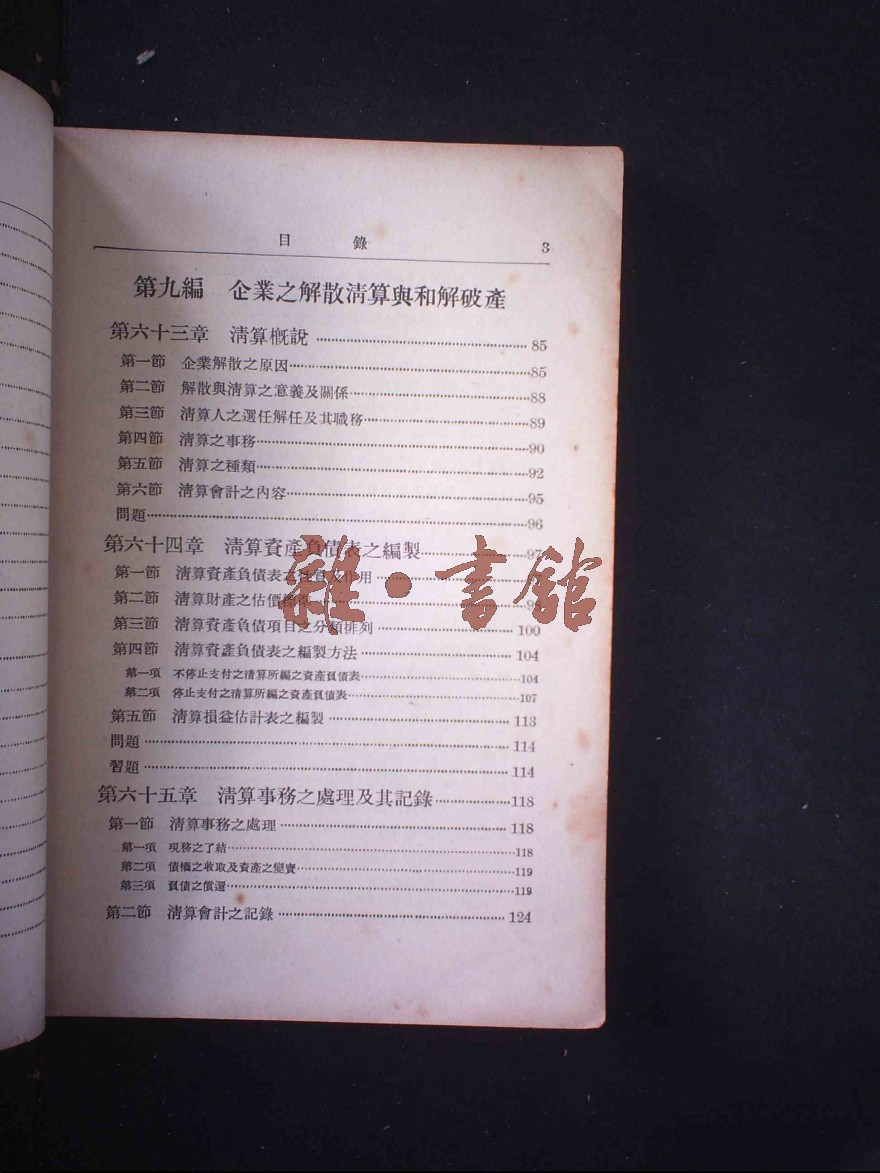 目 錄 3
第九編 企業之解散淸算與和解破產
第六十三章 淸算槪說 85
第一節 企業解散之原因 85
第二節 解散與淸算之意義及關係 88
第三節 淸算人之選任解任及其職務 89
第四節 淸算之事務 90
第五節 淸算之種類 92
第六節 淸算會計之內容 95
問題 96
第六十四章 淸算資產負債表之編製 97
第一節 淸算資產負債表之性質及作用
第二節 淸算財產之估價標準 98
第三節 淸算資產負債項目之分類排列 100
第四節 淸算資產負債表之編製方法 104
第一項 不停止支付之淸算所編之資產負債表 104
第二項 停止支付之淸算所編之資產負債表 107
第五節 淸算損益估計表之編製 113
問題 114
習題 114
第六十五章 淸算事務之處理及其記錄 118
第一節 淸算事務之處理 118
第一項 現務之了結 118
第二項 債權之收取及資產之變賣 119
第三項 負債之償還 119
第二節 淸算會計之記錄 124
雜·書館